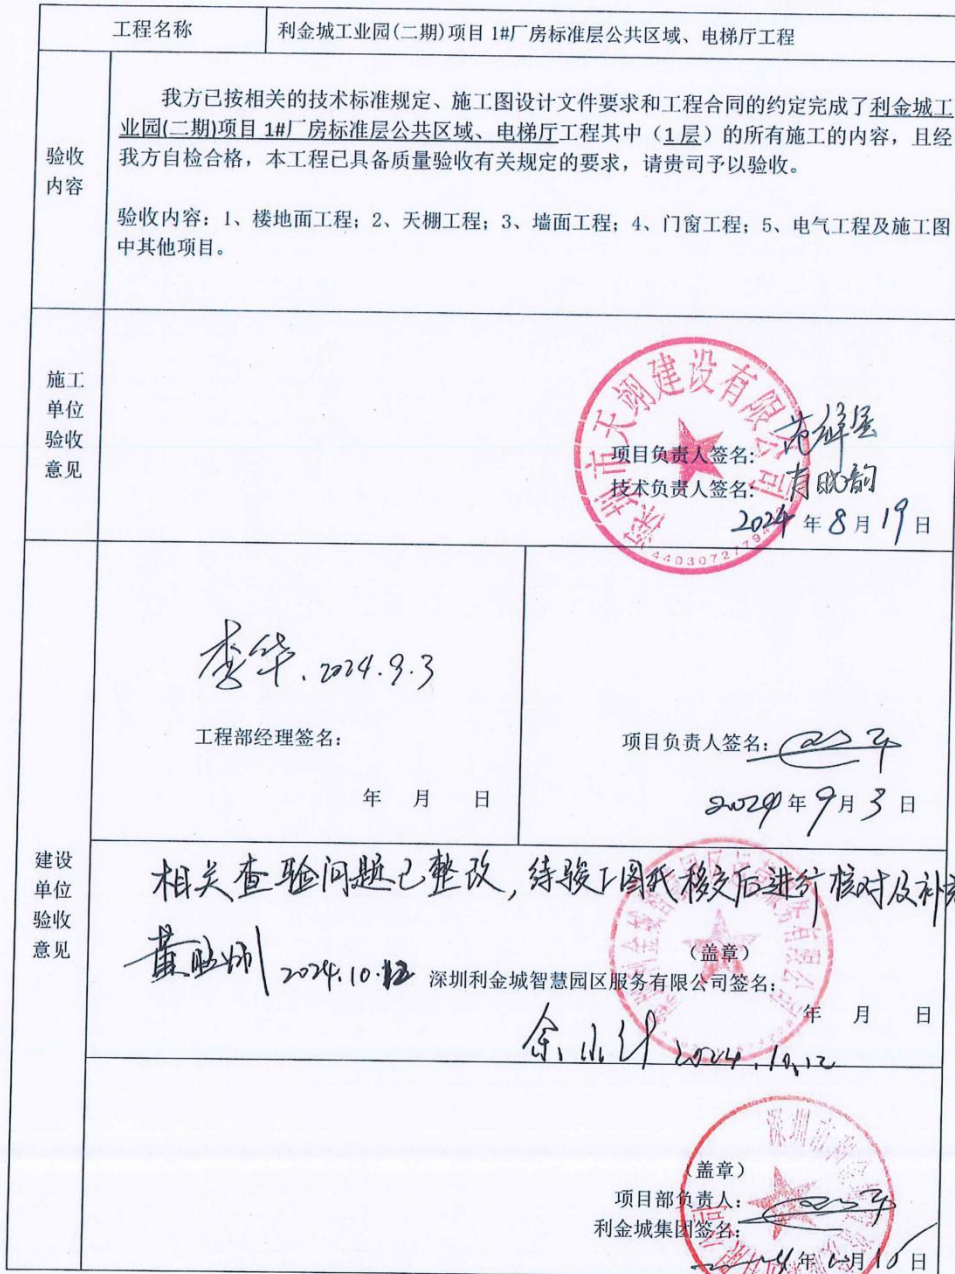 工程名称
利金城工业园(二期)项目 1#厂房标准层公共区域、电梯厅工程
验收
内容
我方已按相关的技术标准规定、施工图设计文件要求和工程合同的约定完成了利金城工
业园(二期)项目 1#厂房标准层公共区域、电梯厅工程其中（1 层）的所有施工的内容，且经
我方自检合格，本工程已具备质量验收有关规定的要求，请贵司予以验收。
验收内容：1、楼地面工程；2、天棚工程；3、墙面工程；4、门窗工程；5、电气工程及施工图
中其他项目。
施工
单位
验收
意见
深圳市天翊建设有限公司
项目负责人签名：
技术负责人签名：
2024 年 8 月 19 日
建设
单位
验收
意见
李华. 2024.9.3
工程部经理签名：
年 月 日
项目负责人签名：
2024 年 9 月 3 日
相关查验问题已整改，待竣工图纸移交后进行核对及补充
2024.10.12
（盖章）
深圳利金城智慧园区服务有限公司签名：
年 月 日
2024.10.12
（盖章）
项目部负责人：
利金城集团签名：
年 月 日